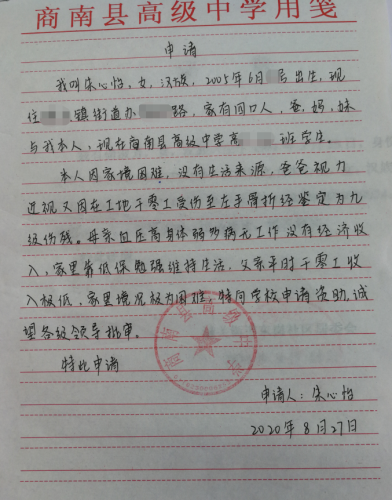 商南县高级中学用笺
申请
我叫宋心怡，女，汉族，2005年6月 号出生，现
住 镇街道办 路，家有四口人，爸，妈，妹
与我本人，现在商南县高级中学高 班学生。
本人因家境困难，没有生活来源，爸爸视力
近视又因在工地干零工受伤至左手骨折经鉴定为九
级伤残。母亲血压高身体弱多病无工作没有经济收
入，家里靠低保勉强维持生活，父亲平时干零工收
入极低，家里境况极为困难，特向学校申请资助，诚
望各级领导批审。
特此申请
商南县高级中学
申请人：宋心怡
2020年8月27日